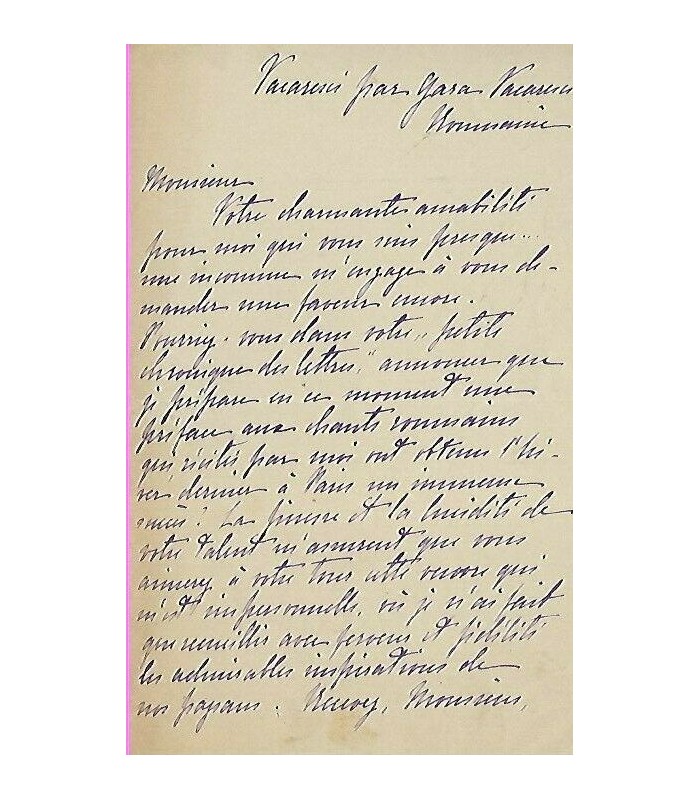 Vacaresci par Gara Vacaresci
Roumanie
Monsieur
Votre charmante amabilité
pour moi qui vous suis presque...
une inconnue m'engage à vous de-
mander une faveur encore.
Pourriez-vous dans votre „petite
chronique des lettres," annoncer que
je prépare en ce moment une
préface aux chants roumains
qui récités par moi ont obtenu l'hi-
ver dernier à Paris un immense
succès? La finesse et la lucidité de
votre talent m'assurent que vous
aimerez à votre tour cette oeuvre qui
m'est impersonnelle, où je n'ai fait
que recueillir avec ferveur et fidélité
les admirables inspirations de
nos paysans. Recevez, Monsieur,